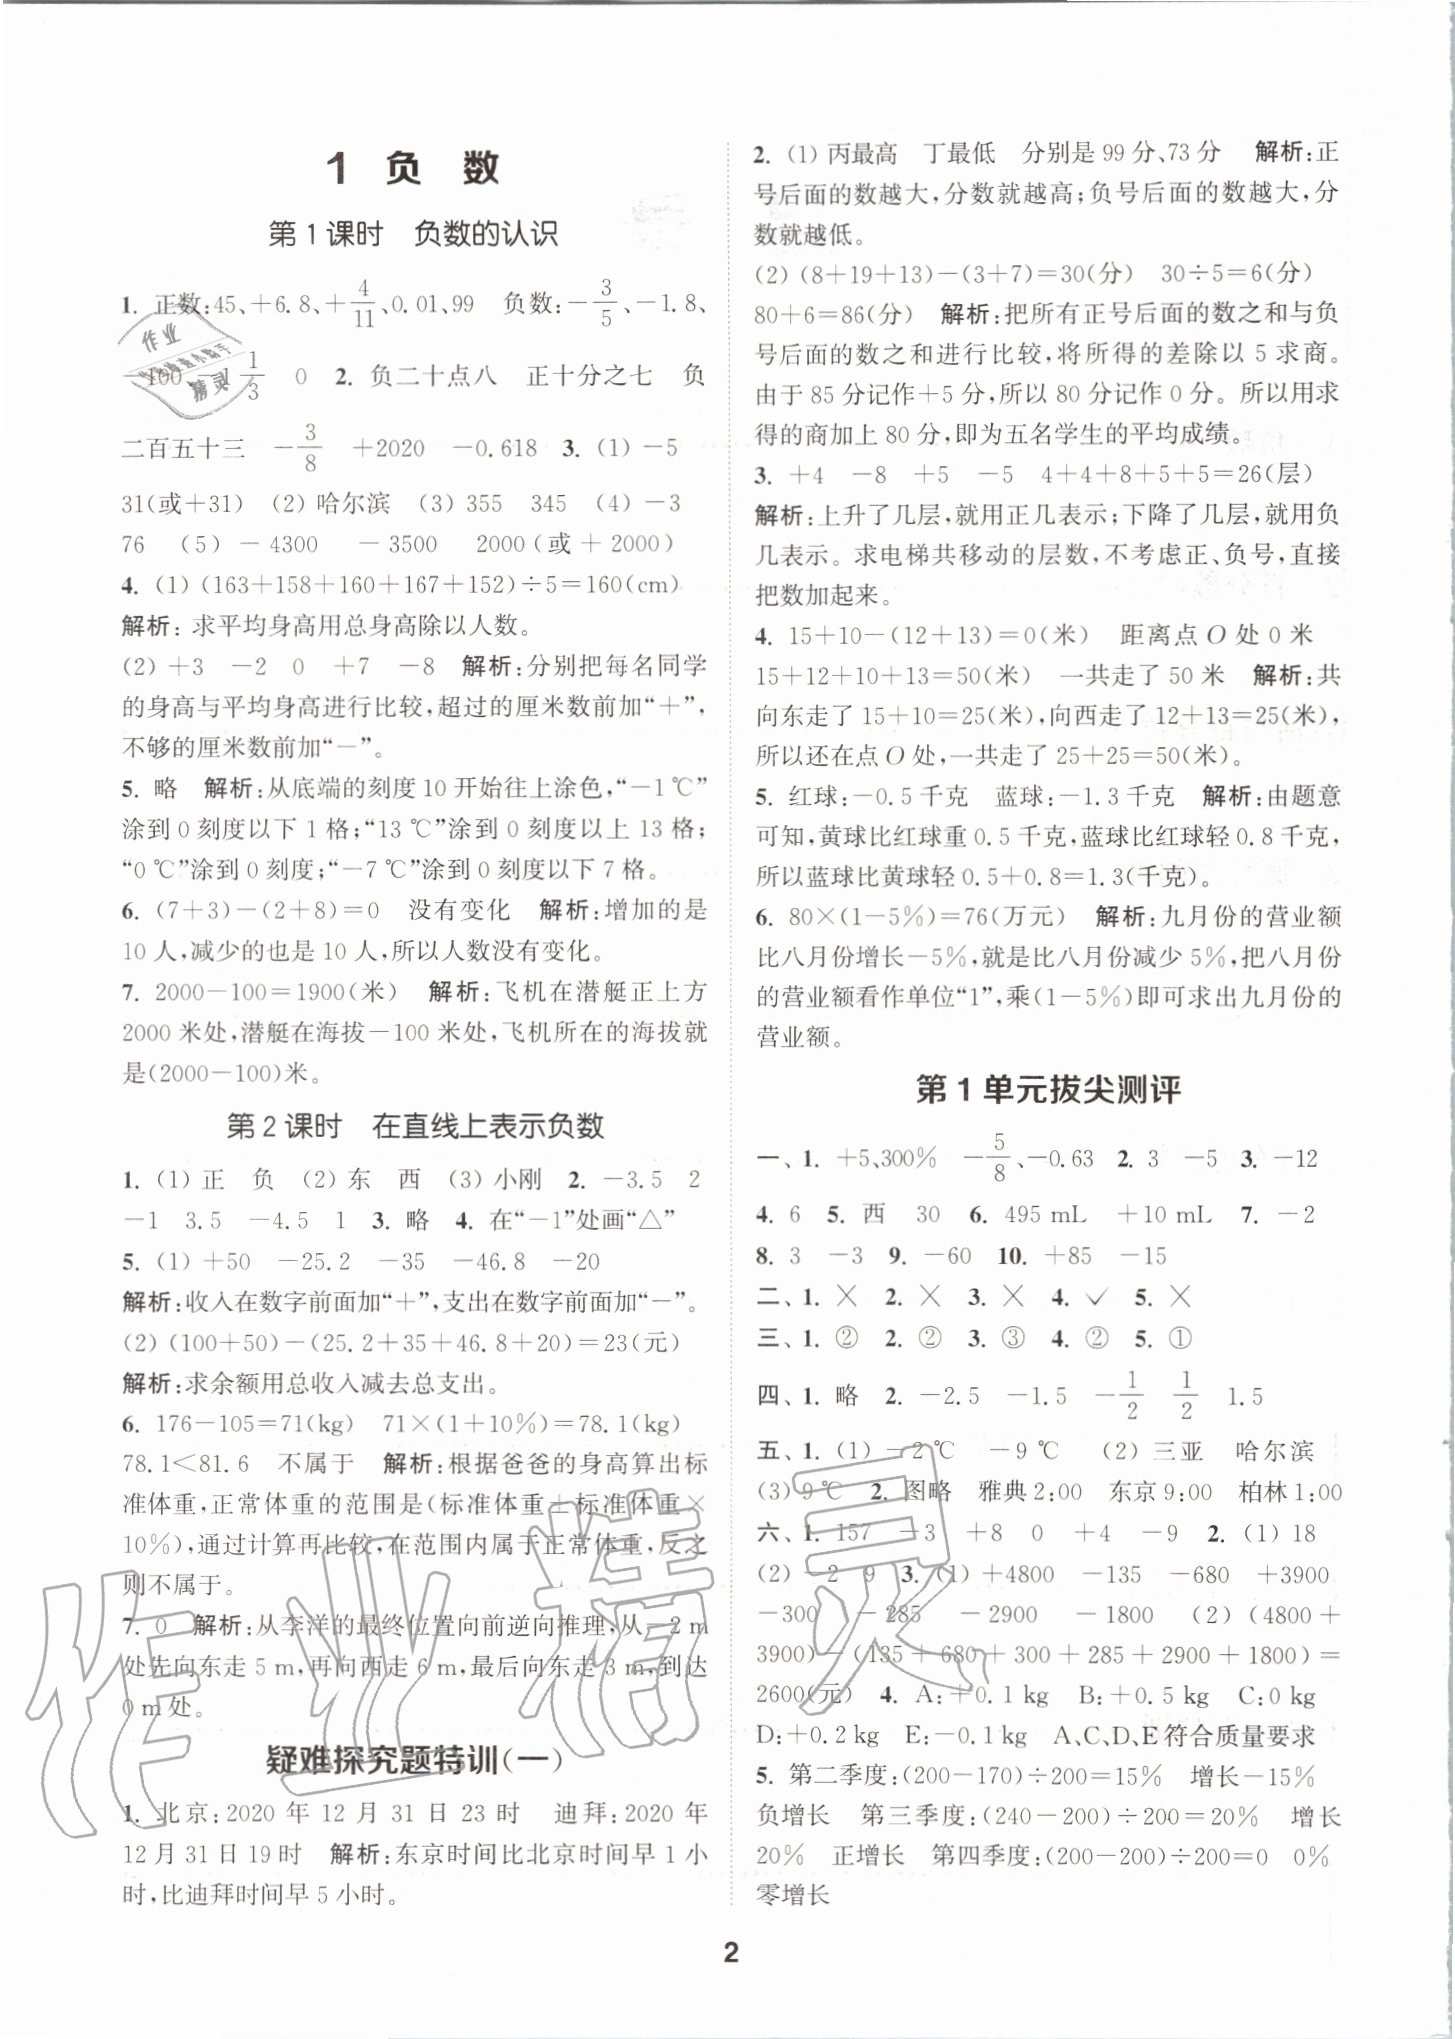 1 负 数
第1课时 负数的认识
1. 正数:45、+6.8、+4/11、0.01、99 负数:-3/5、-1.8、
-100 1/3 0 2. 负二十点八 正十分之七 负
二百五十三 -3/8 +2020 -0.618 3. (1)-5
31(或+31) (2)哈尔滨 (3)355 345 (4)-3
76 (5)-4300 -3500 2000(或+2000)
4. (1)(163+158+160+167+152)÷5=160(cm)
解析:求平均身高用总身高除以人数。
(2)+3 -2 0 +7 -8 解析:分别把每名同学
的身高与平均身高进行比较,超过的厘米数前加“+”,
不够的厘米数前加“-”。
5. 略 解析:从底端的刻度10开始往上涂色,“-1℃”
涂到0刻度以下1格;“13℃”涂到0刻度以上13格;
“0℃”涂到0刻度;“-7℃”涂到0刻度以下7格。
6. (7+3)-(2+8)=0 没有变化 解析:增加的是
10人,减少的也是10人,所以人数没有变化。
7. 2000-100=1900(米) 解析:飞机在潜艇正上方
2000米处,潜艇在海拔-100米处,飞机所在的海拔就
是(2000-100)米。
第2课时 在直线上表示负数
1. (1)正 负 (2)东 西 (3)小刚 2. -3.5 2
-1 3.5 -4.5 1 3. 略 4. 在“-1”处画“△”
5. (1)+50 -25.2 -35 -46.8 -20
解析:收入在数字前面加“+”,支出在数字前面加“-”。
(2)(100+50)-(25.2+35+46.8+20)=23(元)
解析:求余额用总收入减去总支出。
6. 176-105=71(kg) 71×(1+10%)=78.1(kg)
78.1<81.6 不属于 解析:根据爸爸的身高算出标
准体重,正常体重的范围是(标准体重±标准体重×
10%),通过计算再比较,在范围内属于正常体重,反之
则不属于。
7. 0 解析:从李洋的最终位置向前逆向推理,从-2 m
处先向东走5 m,再向西走6 m,最后向东走3 m,到达
0 m处。
疑难探究题特训(一)
1. 北京:2020年12月31日23时 迪拜:2020年
12月31日19时 解析:东京时间比北京时间早1小
时,比迪拜时间早5小时。
2. (1)丙最高 丁最低 分别是99分、73分 解析:正
号后面的数越大,分数就越高;负号后面的数越大,分
数就越低。
(2)(8+19+13)-(3+7)=30(分) 30÷5=6(分)
80+6=86(分) 解析:把所有正号后面的数之和与负
号后面的数之和进行比较,将所得的差除以5求商。
由于85分记作+5分,所以80分记作0分。所以用求
得的商加上80分,即为五名学生的平均成绩。
3. +4 -8 +5 -5 4+4+8+5+5=26(层)
解析:上升了几层,就用正几表示;下降了几层,就用负
几表示。求电梯共移动的层数,不考虑正、负号,直接
把数加起来。
4. 15+10-(12+13)=0(米) 距离点O处0米
15+12+10+13=50(米) 一共走了50米 解析:共
向东走了15+10=25(米),向西走了12+13=25(米),
所以还在点O处,一共走了25+25=50(米)。
5. 红球:-0.5千克 蓝球:-1.3千克 解析:由题意
可知,黄球比红球重0.5千克,蓝球比红球轻0.8千克,
所以蓝球比黄球轻0.5+0.8=1.3(千克)。
6. 80×(1-5%)=76(万元) 解析:九月份的营业额
比八月份增长-5%,就是比八月份减少5%,把八月份
的营业额看作单位“1”,乘(1-5%)即可求出九月份的
营业额。
第1单元拔尖测评
一、1. +5、300% -5/8、-0.63 2. 3 -5 3. -12
4. 6 5. 西 30 6. 495 mL +10 mL 7. -2
8. 3 -3 9. -60 10. +85 -15
二、1. × 2. × 3. × 4. ✓ 5. ×
三、1. ② 2. ② 3. ③ 4. ② 5. ①
四、1. 略 2. -2.5 -1.5 -1/2 1/2 1.5
五、1. (1)-2℃ -9℃ (2)三亚 哈尔滨
(3)9℃ 2. 图略 雅典2:00 东京9:00 柏林1:00
六、1. 157 -3 +8 0 +4 -9 2. (1)18
(2)-2 9 3. (1)+4800 -135 -680 +3900
-300 -285 -2900 -1800 (2)(4800+
3900)-(135+680+300+285+2900+1800)=
2600(元) 4. A:+0.1 kg B:+0.5 kg C:0 kg
D:+0.2 kg E:-0.1 kg A、C、D、E符合质量要求
5. 第二季度:(200-170)÷200=15% 增长-15%
负增长 第三季度:(240-200)÷200=20% 增长
20% 正增长 第四季度:(200-200)÷200=0 0%
零增长
2
作业精灵